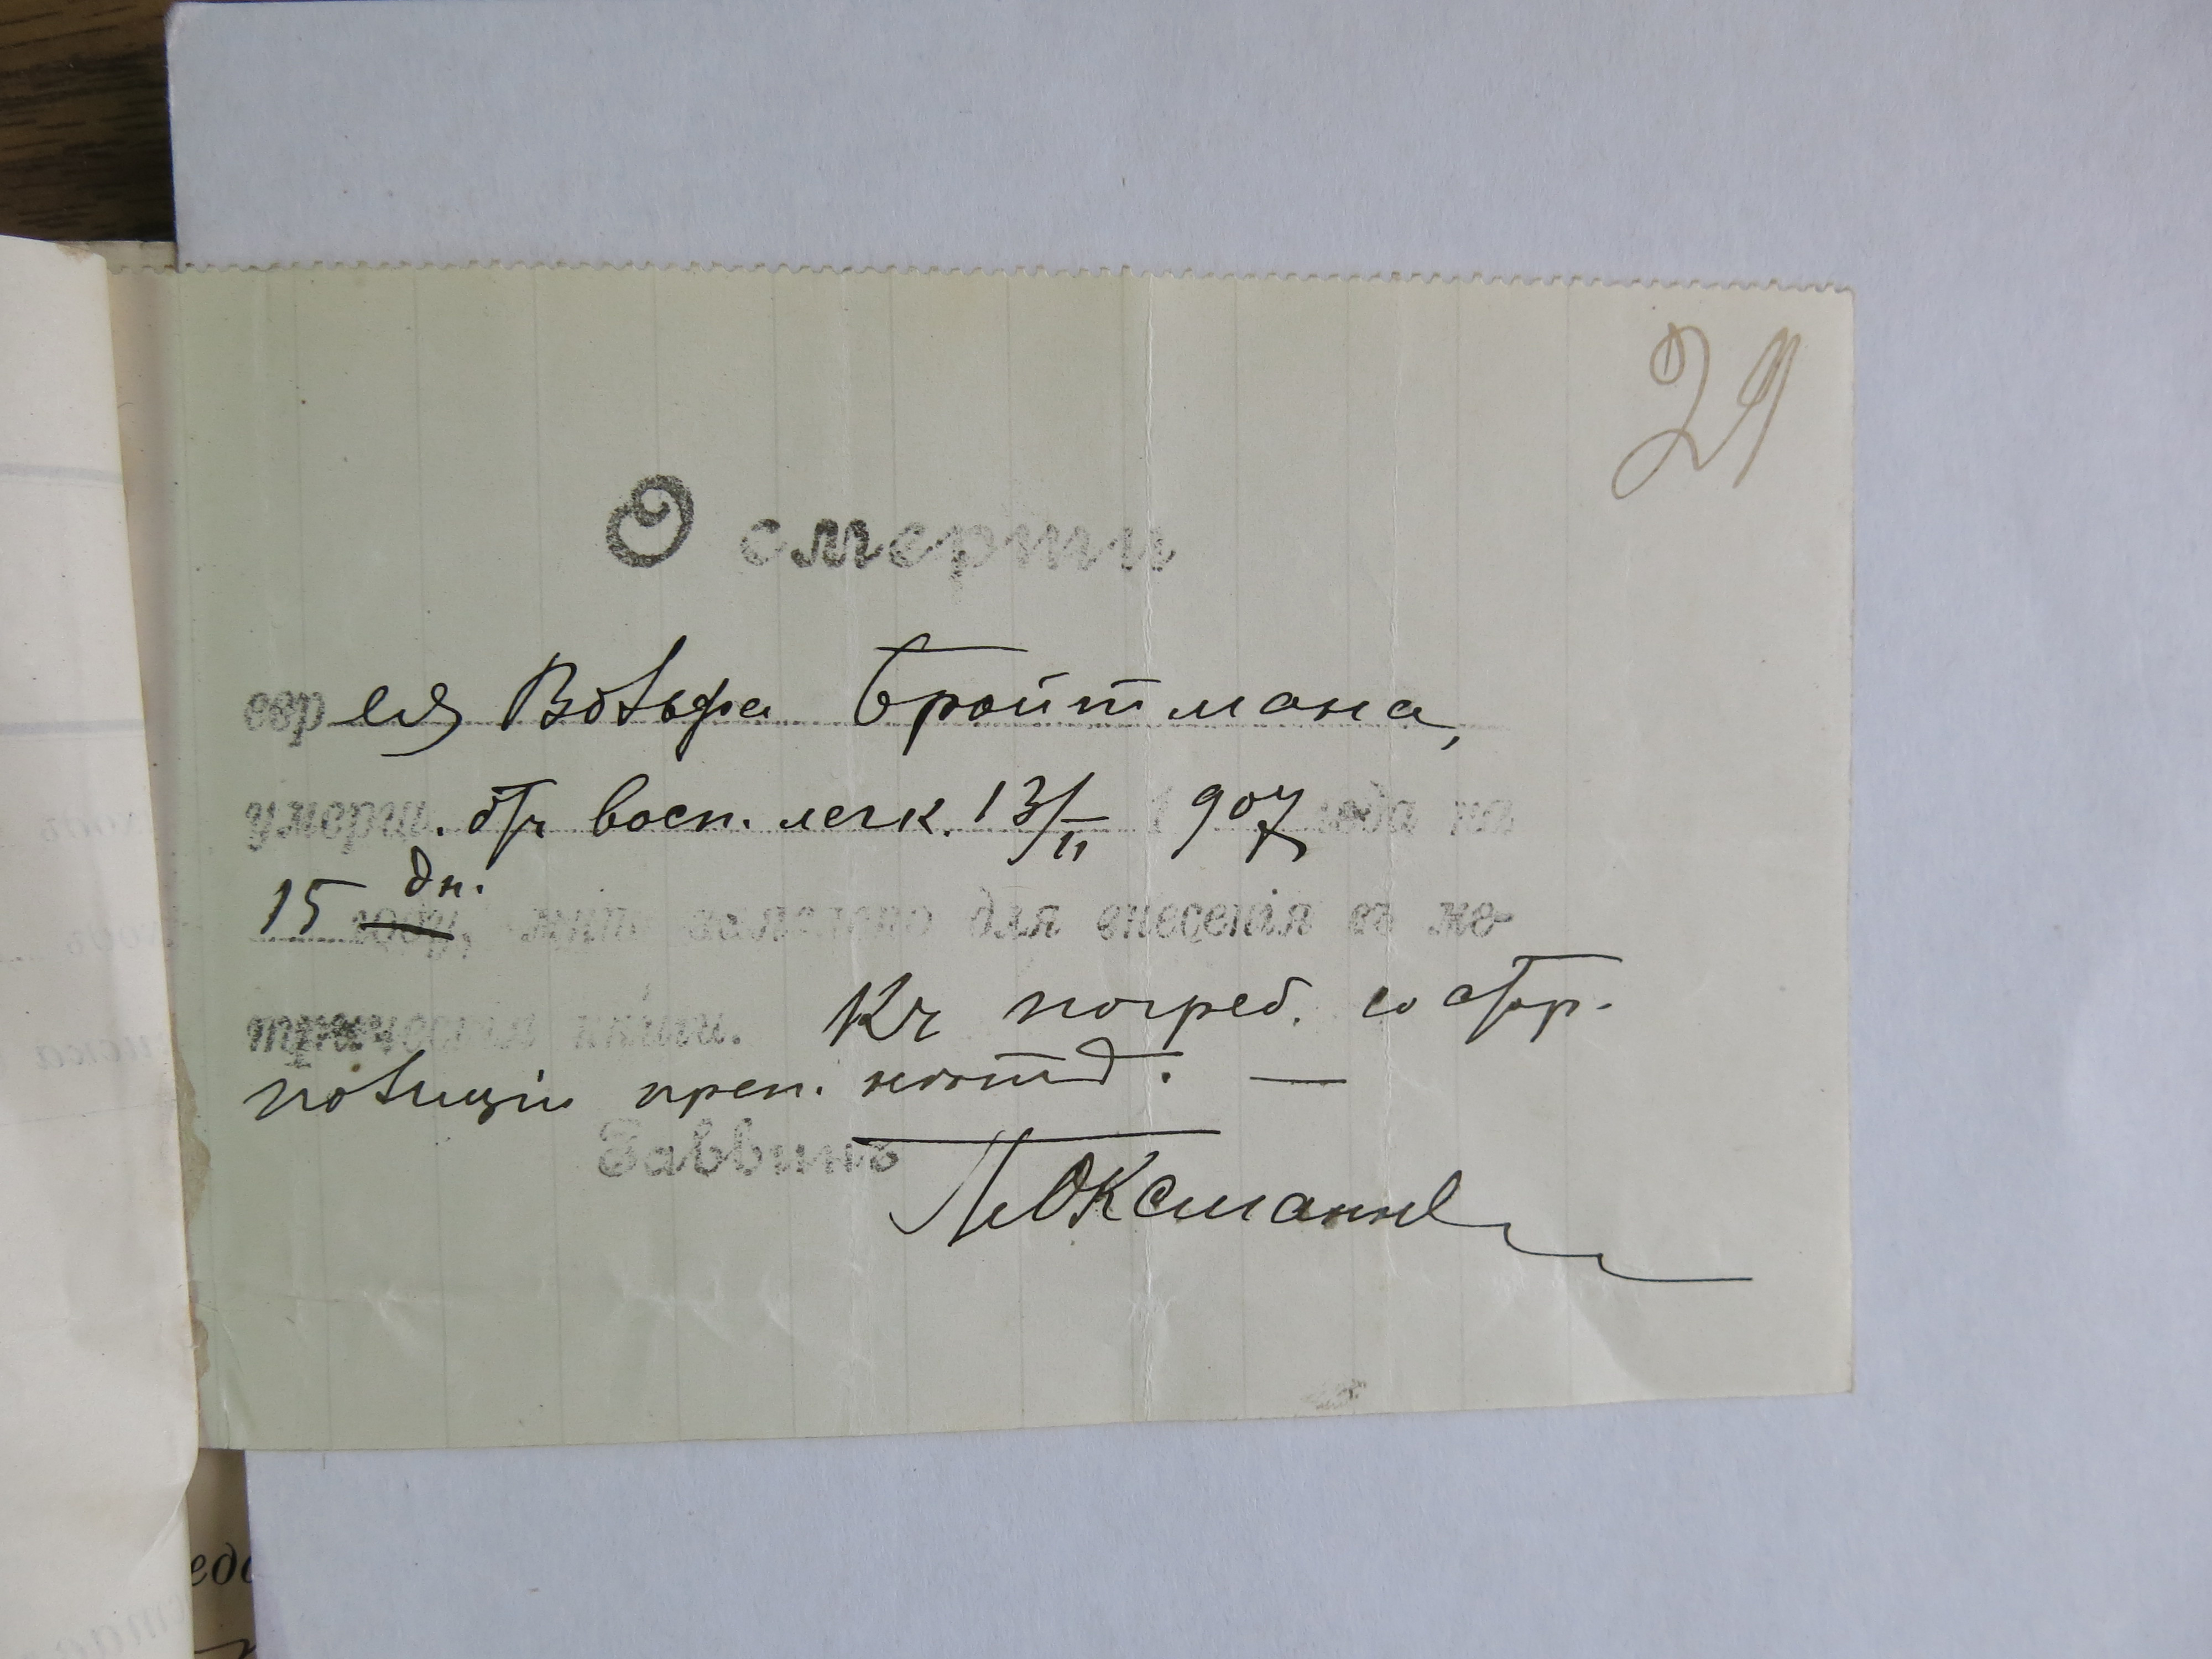 29
О смерти
еврея Вольфа Бройтмана,
умерш. отъ восп. легк. 13/II 1907 года на
15 дн. году, мною заявлено для внесенія въ ме-
трическія книги. Къ погреб. со стор.
полиціи преп. нѣтъ. —
Раввинъ
Оксманъ
едо